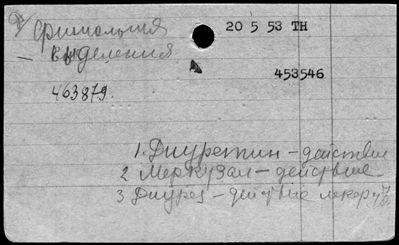 20 5 53 ТН
выделения
453546
463879.
1. Диуретин – действие
2 Меркузал – действие
3 Диурез – действие лекарств